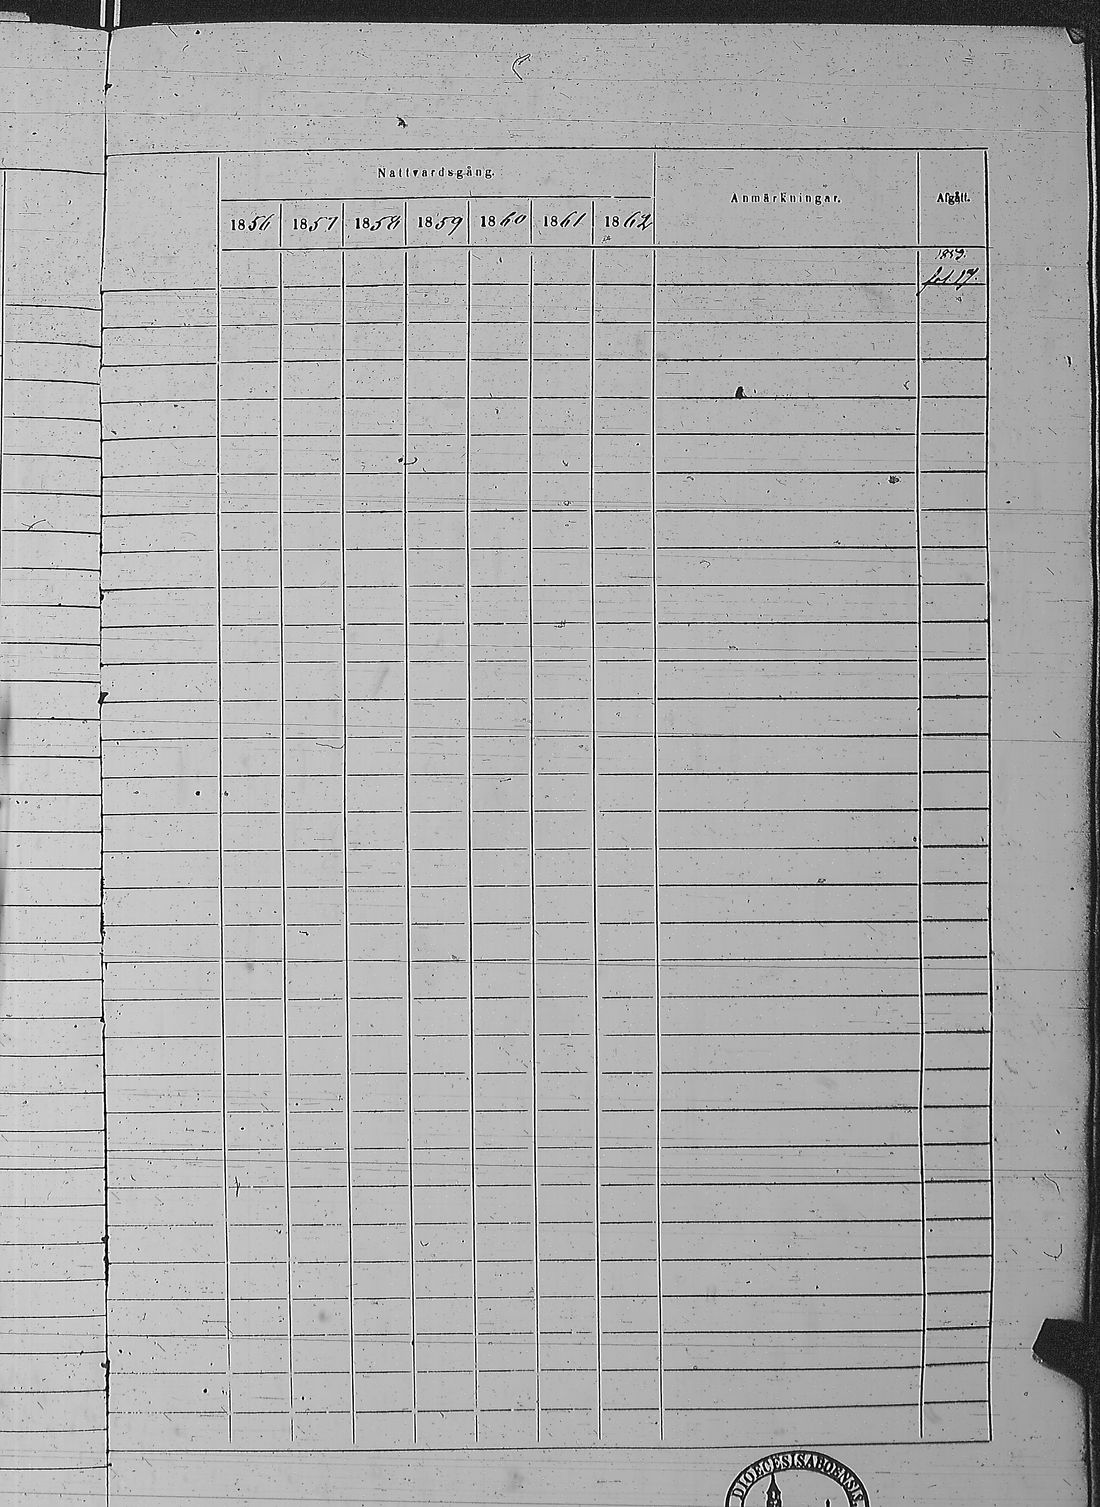 Nattvardsgång.
Anmärkningar.
Afgått.
1856 1857 1858 1859 1860 1861 1862
1859.
fol. 17.
DIOECESIS ABOENSIS